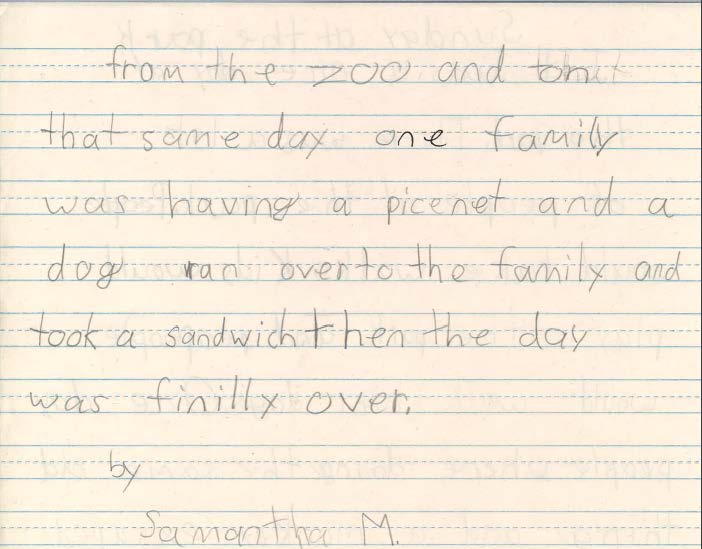 from the zoo and
that same day one family
was having a picenet and a
dog ran over to the family and
took a sandwich then the day
was finilly over.
by
Samantha M.